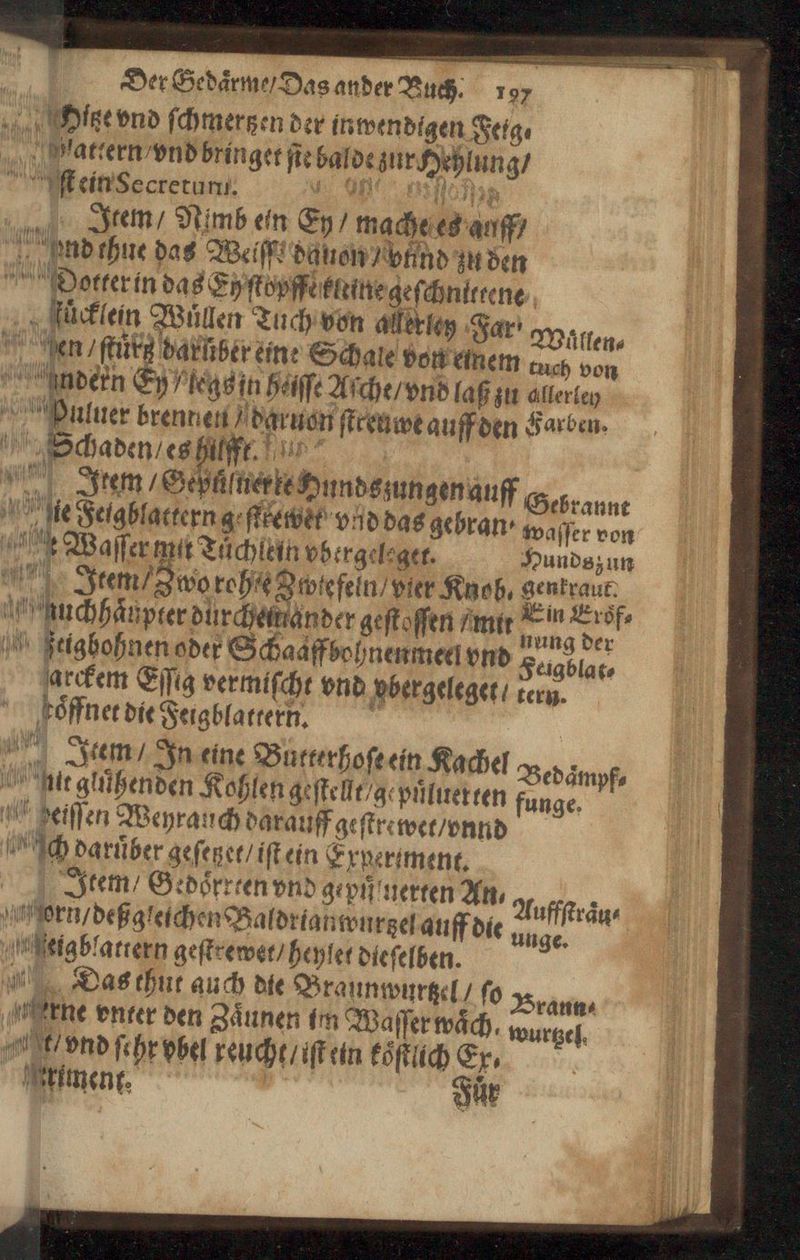 Der Gedårme/Das ander Buch. 197
Hitze vnd ſchmertzen der inwendigen Feig⸗
blattern/vnd bringet ſie balde zur Hehlung/
iſt ein Secretum.
Item/ Nimb ein Ey/ mache es auff/
vnd thue das Weiſſe dauon/ vnnd zu den
Dotter in das Ey ſtopffe kleine geſchnittene
ſtuͤcklein Wuͤllen Tuch von allerley Far⸗
ben/ ſtuͤrtz daruͤber eine Schale von einem
andern Ey/ legs in heiſſe Aſche/vnd laß zu
Puluer brennen/ daruon ſtreuwe auff den
Schaden/es hilfft.
Wuͤllen⸗
tuch von
allerley
Farben.
Item/Gepuͤluerte Hundszungen auff
die Feigblattern geſtrewet vnd das gebran⸗
te Waſſer mit Tuͤchlein vbergeleget.
Gebrannt
waſſer von
Hundszun
genkraut.
Item/Zwo rohe Zwiefeln/vier Knob⸗
lauchhaͤupter durcheinander geſtoſſen/mit
Feigbohnen oder Schaaffbohnenmeel vnd
ſtarckem Eſſig vermiſcht vnd vbergeleget/
eroͤffnet die Feigblattern.
Ein Eroͤf⸗
nung der
Feigblat⸗
tern.
Item/ In eine Butterhoſe ein Kachel
mit gluͤhenden Kohlen geſtellt/gepuͤluerten
weiſſen Weyrauch darauff geſtrewet/vnnd
ſich daruͤber geſetzet/iſt ein Experiment.
Bedaͤmpf⸗
funge.
Item/ Gedoͤrrten vnd gepuͤluerten An⸗
dorn/deßgleichen Baldrianwurtzel auff die
Feigblattern geſtrewet/heylet dieſelben.
Auffſtraͤu⸗
unge.
Das thut auch die Braunwurtzel/ ſo
gerne vnter den Zaͤunen im Waſſer waͤch⸗
ſt/vnd ſehr vbel reucht/iſt ein koͤſtlich Ex⸗
periment.
Braun⸗
wurtzel.
Fuͤr